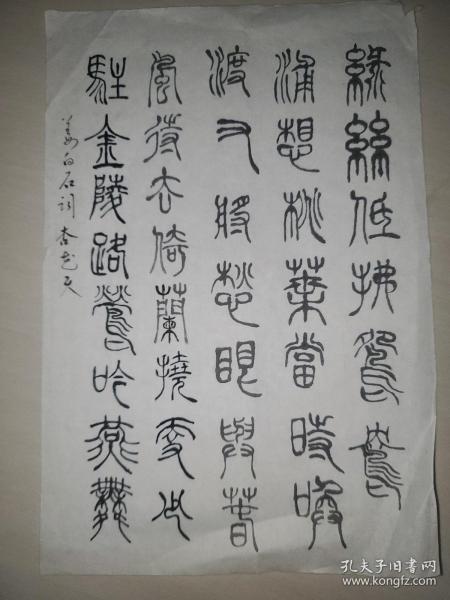 綠絲低拂鴛鴦
浦想桃葉當時喚
渡又將愁眼與春
風待去倚蘭橈更少
駐金陵路鶯吟燕舞
姜白石詞 杏花天
孔夫子旧书网
www.kongfz.com